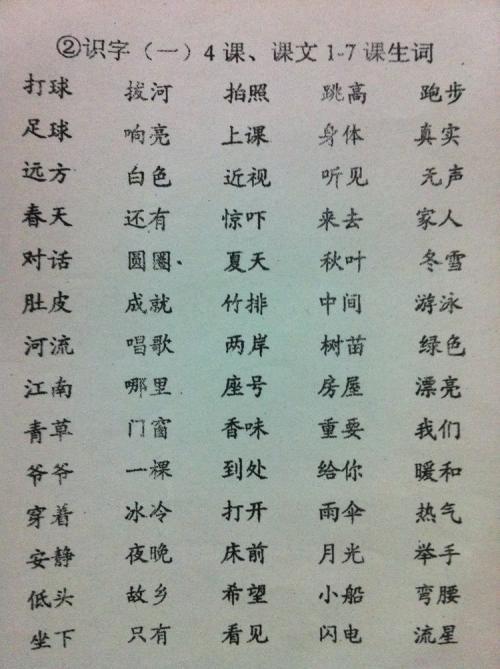 ②识字（一）4课、课文1-7课生词
打球 拔河 拍照 跳高 跑步
足球 响亮 上课 身体 真实
远方 白色 近视 听见 无声
春天 还有 惊吓 来去 家人
对话 圆圈 夏天 秋叶 冬雪
肚皮 成就 竹排 中间 游泳
河流 唱歌 两岸 树苗 绿色
江南 哪里 座号 房屋 漂亮
青草 门窗 香味 重要 我们
爷爷 一棵 到处 给你 暖和
穿着 冰冷 打开 雨伞 热气
安静 夜晚 床前 月光 举手
低头 故乡 希望 小船 弯腰
坐下 只有 看见 闪电 流星